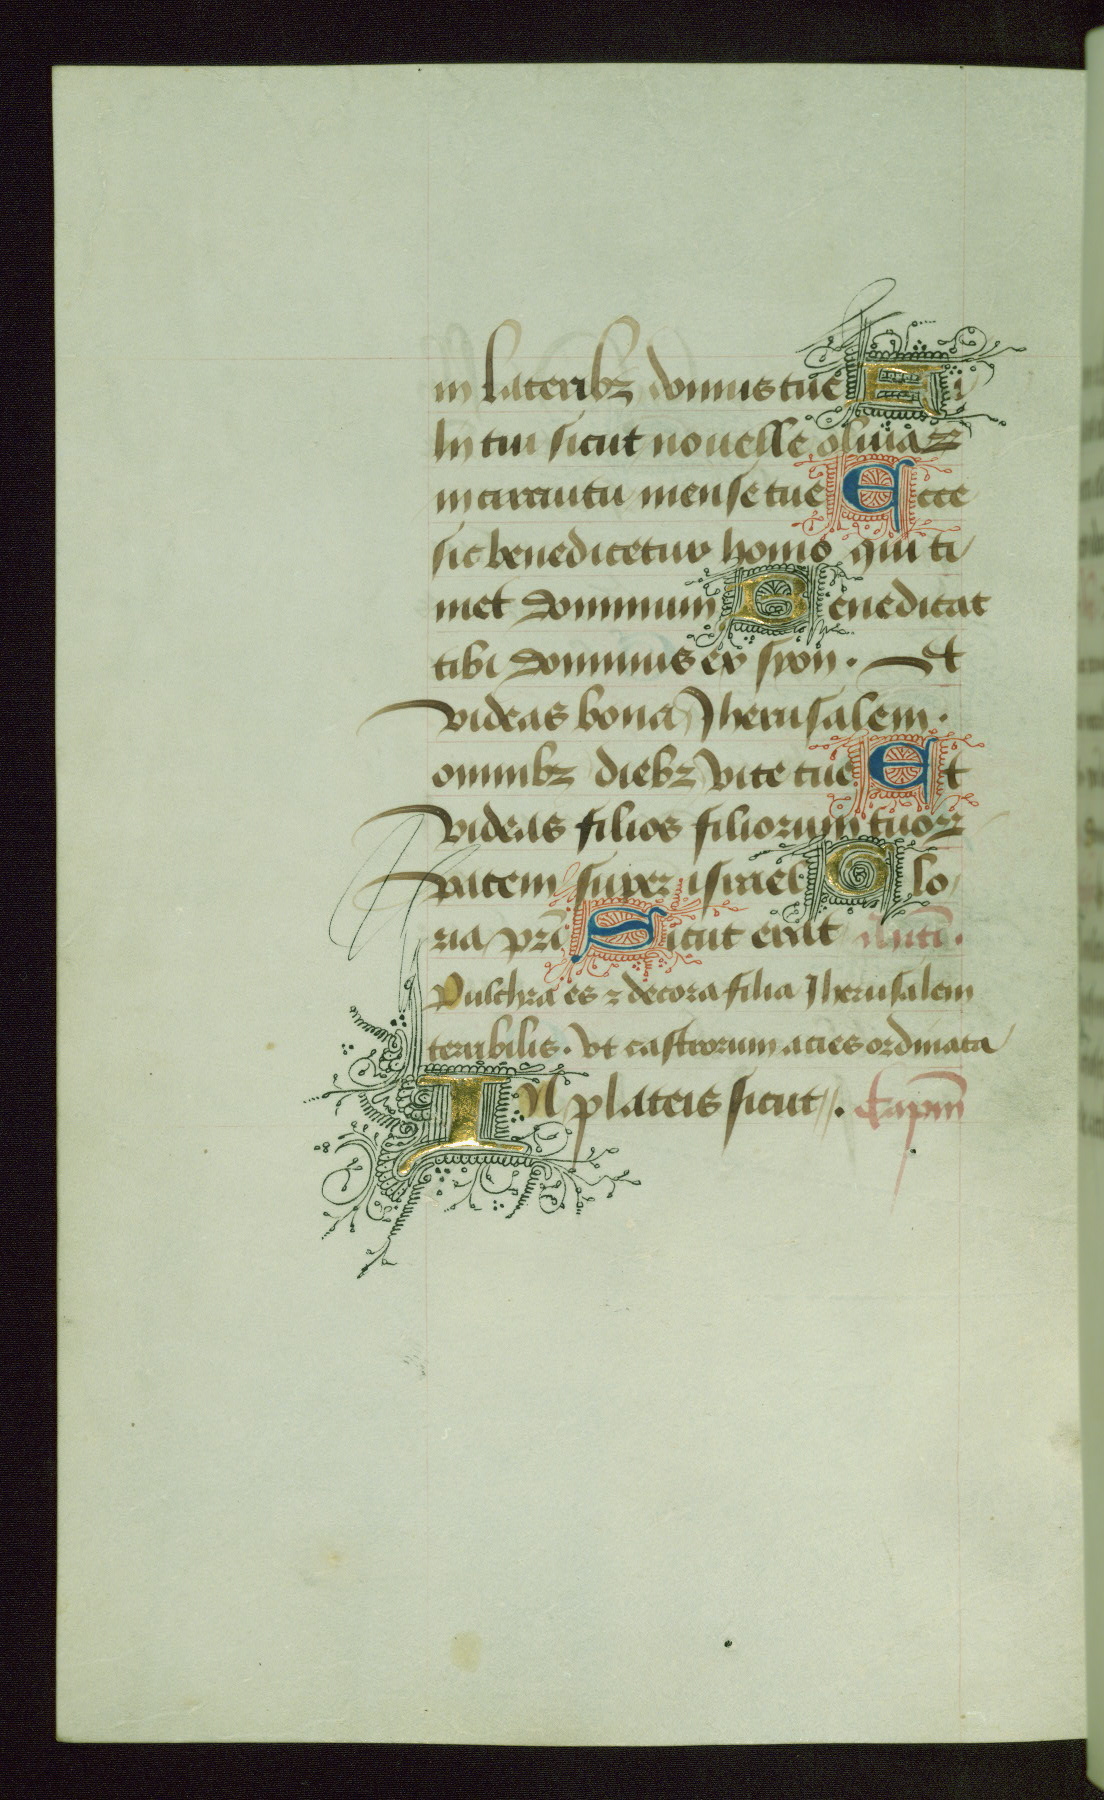 in lateribꝫ domus tue Fi
lii tui sicut nouelle oliuaꝝ
in circuitu mense tue Ecce
sic benedicetur homo qui ti
met dominum Benedicat
tibi dominus ex syon · Et
videas bona Iherusalem ·
omnibꝫ diebꝫ vite tue Et
videas filios filiorum tuoꝝ
pacem super israel Glo
ria pri̅ Sicut erat an̅ti̅ ·
Pulchra es ⁊ decora filia Iherusalem
terribilis · vt castrorum acies ordinata
In plateis sicut · Capm̅